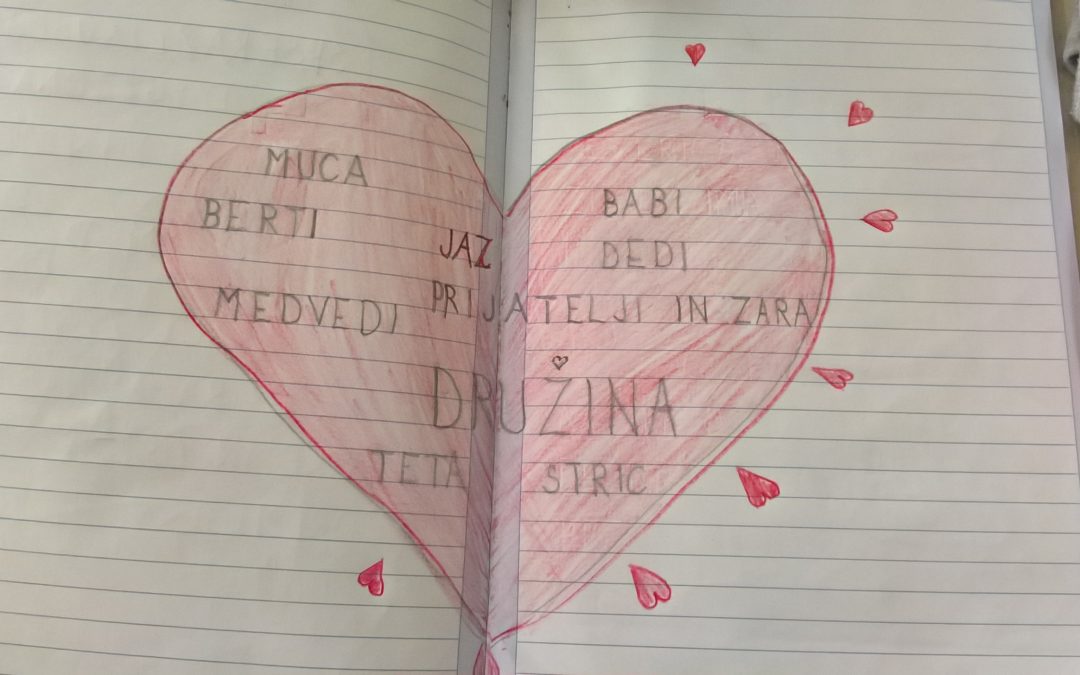 MUCA
BERTI
MEDVEDI
JAZ
BABI
DEDI
PRIJATELJI IN ZARA
DRUŽINA
TETA STRIC